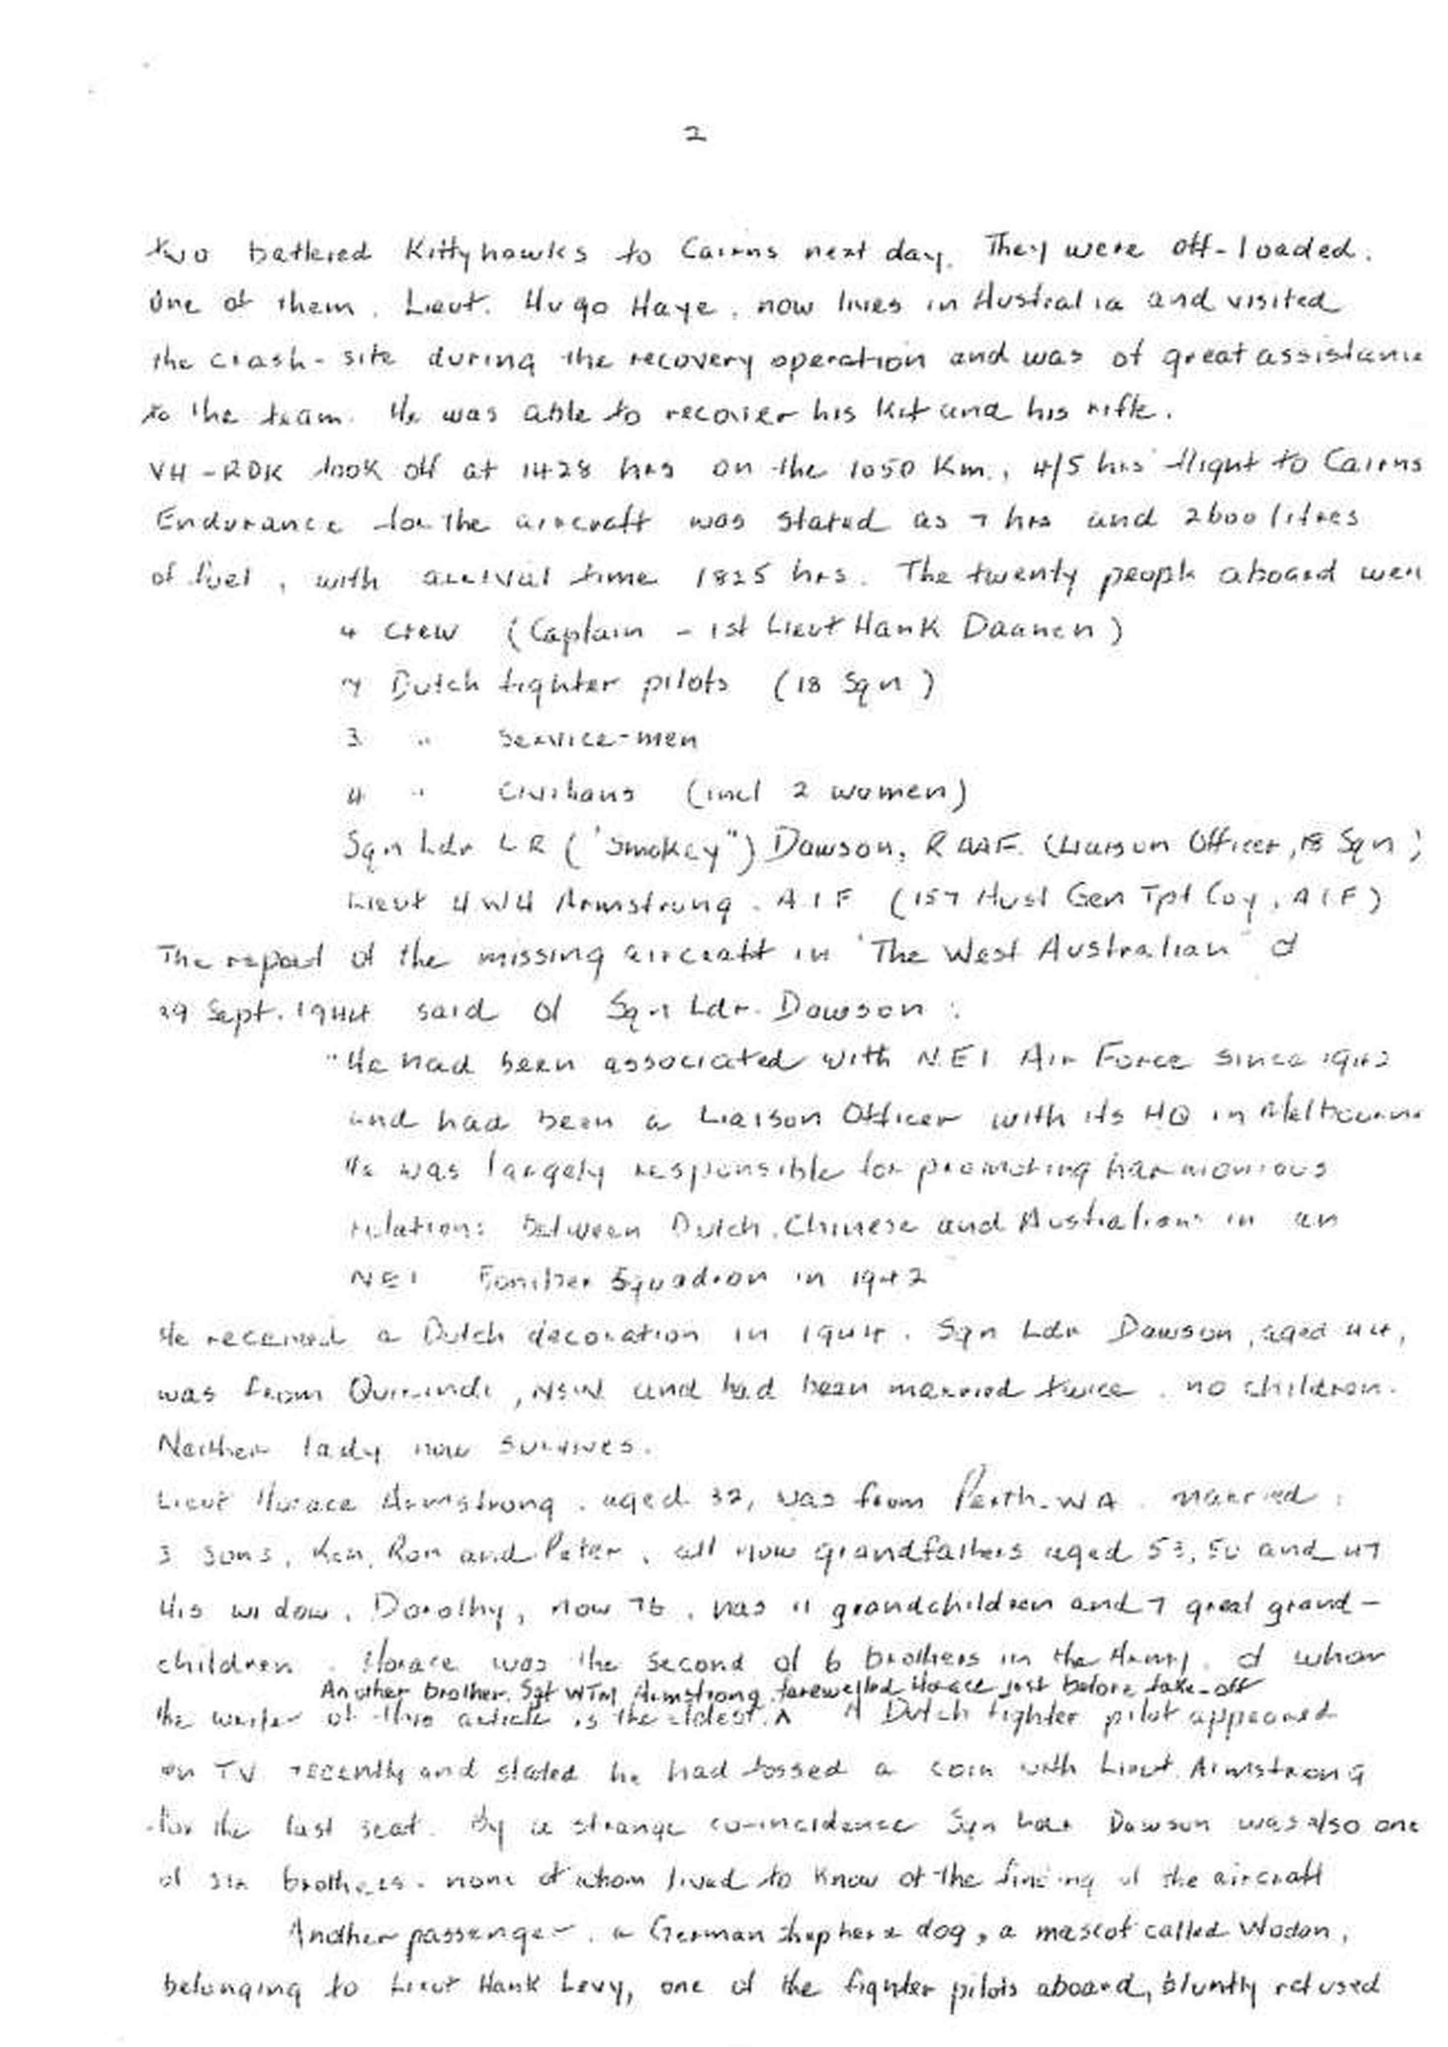 2
two battered Kittyhawks to Cairns next day. They were off-loaded.
One of them, Lieut. Hugo Haye, now lives in Australia and visited
the crash-site during the recovery operation and was of great assistance
to the team. He was able to recover his kit and his rifle.
VH-RDK took off at 1428 hrs on the 1050 Km., 4/5 hrs flight to Cairns
Endurance for the aircraft was stated as 7 hrs and 2600 litres
of fuel, with arrival time 1825 hrs. The twenty people aboard were
4 crew (Captain - 1st Lieut Hank Daanen)
7 Dutch fighter pilots (18 Sqn)
3 " Service-men
4 " Civilians (incl 2 women)
Sqn Ldr LR ("Smokey") Dawson, RAAF. (Liaison Officer, 18 Sqn)
Lieut HWH Armstrong. AIF (157 Aust Gen Tpt Coy, AIF)
The report of the missing aircraft in "The West Australian" of
29 Sept. 1944 said of Sqn Ldr. Dawson:
"He had been associated with NEI Air Force since 1942
and had been a Liaison Officer with its HQ in Melbourne
He was largely responsible for promoting harmonious
relations between Dutch, Chinese and Australians in an
NEI Bomber Squadron in 1942
He received a Dutch decoration in 1944. Sqn Ldr Dawson, aged 44,
was from Quirindi, NSW and had been married twice, no children.
Neither lady now survives.
Lieut Horace Armstrong, aged 32, was from Perth. WA. Married,
3 sons, Ken, Ron and Peter, all now grandfathers aged 53, 50 and 47
His widow, Dorothy, now 76, has 11 grandchildren and 7 great grand-
children. Horace was the second of 6 brothers in the Army, of whom
Another brother, Sgt WTM Armstrong, farewelled Horace just before take-off
the writer of this article is the eldest. ^ A Dutch fighter pilot appeared
on TV recently and stated he had tossed a coin with Lieut. Armstrong
for the last seat. By a strange co-incidence Sqn Ldr Dawson was also one
of six brothers, none of whom lived to know of the finding of the aircraft
Another passenger, a German shepherd dog, a mascot called Wodan,
belonging to Lieut Hank Levy, one of the fighter pilots aboard, bluntly refused